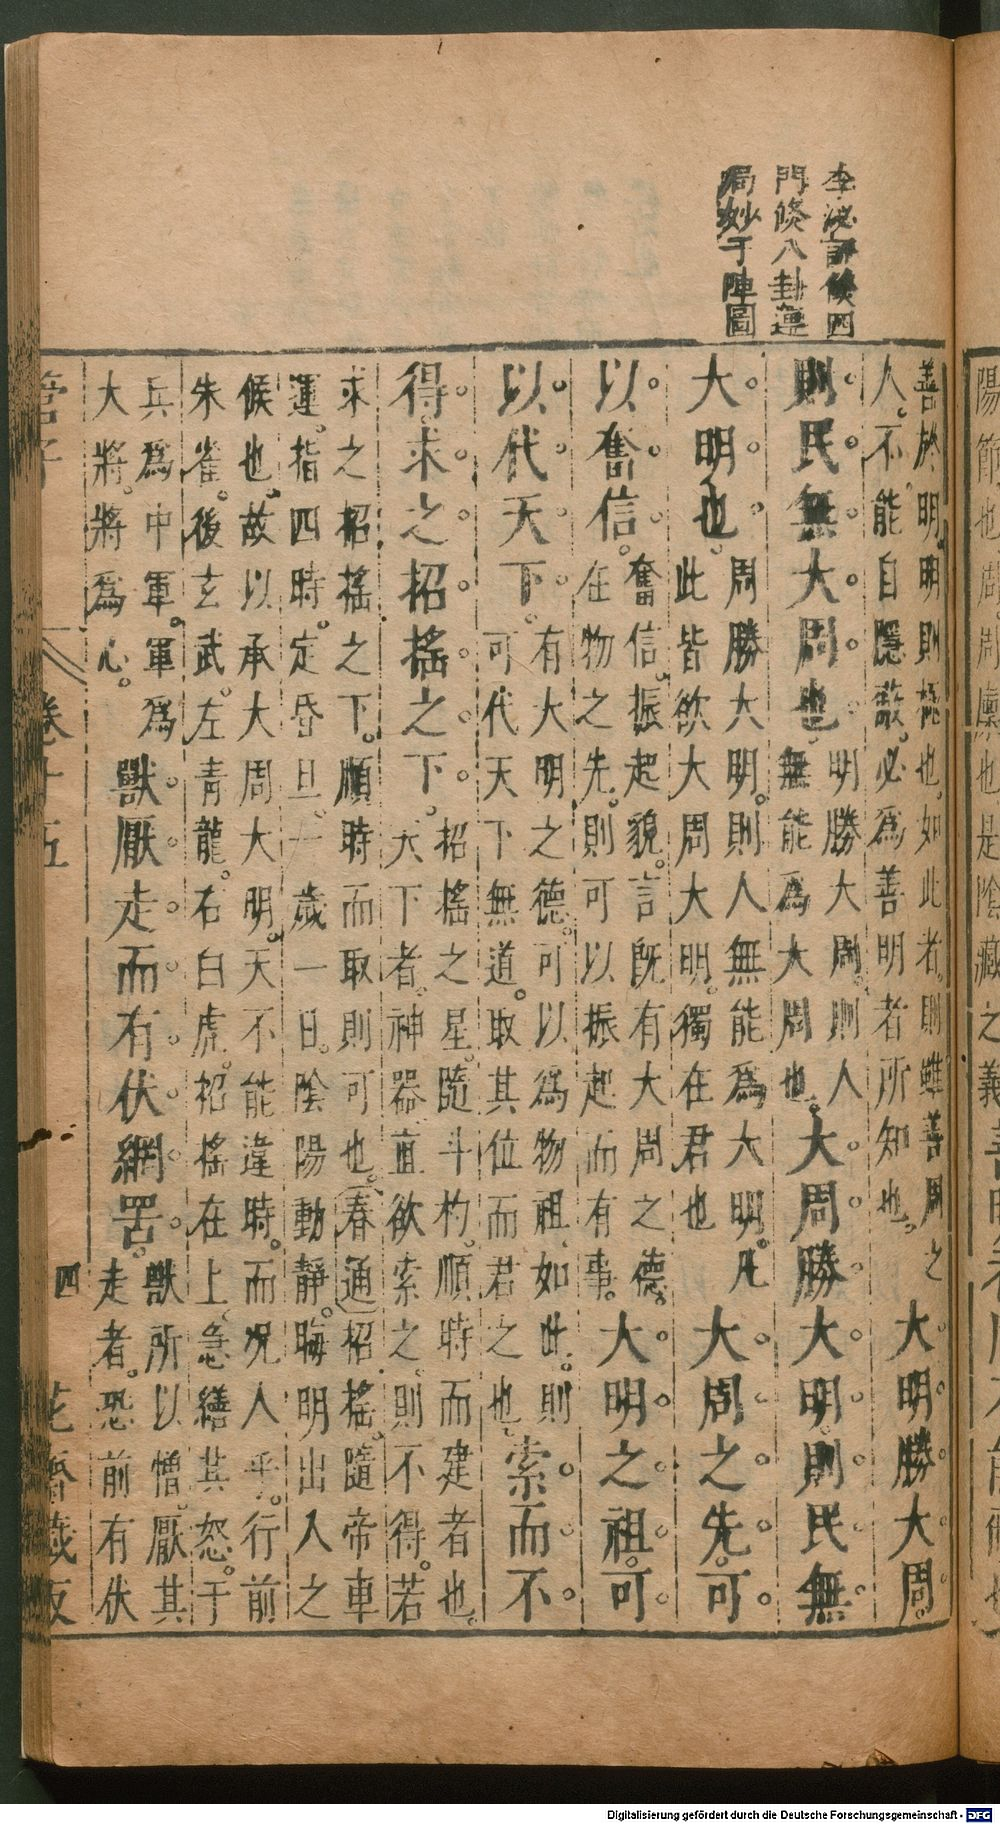 李泌評倏四
門倏八卦遶
局妙于陣圖
陽節也周周廩也是陰藏之義
善於明。明則極也。如此者。則雖善周之
人。不能自隱蔽。必爲善明者所知也。
大明勝大周。
則民無大周也。
明勝大周。則人
無能爲大周也。
大周勝大明。則民無
大明也。
周勝大明。則人無能爲大明。凡
此皆欲大周大明。獨在君也
大周之先。可
以奮信。
奮信。振起貌。言既有大周之德。
在物之先。則可以振起而有事。
大明之祖。可
以代天下。
有大明之德。可以爲物祖。如此。則
可代天下無道。取其位而君之也。
索而不
得。求之招搖之下。
招搖之星。隨斗杓。順時而建者也。
天下者。神器。直欲索之。則不得。若
求之招搖之下。順時而取則可也。春通招搖。隨帝車
運。指四時。定昏旦。一歲一日。陰陽動靜。晦明出入之
候也。故以承大周大明。天不能違時。而况人乎。行前
朱雀。後玄武。左青龍。右白虎。招搖在上。急繕其怒。于
兵爲中軍。軍爲
大將。將爲心。
獸厭走而有伏網罟。
獸所以憎。厭其
走者。恐前有伏
管子
卷十五
四
花齋藏板
Digitalisierung gefördert durch die Deutsche Forschungsgemeinschaft - DFG